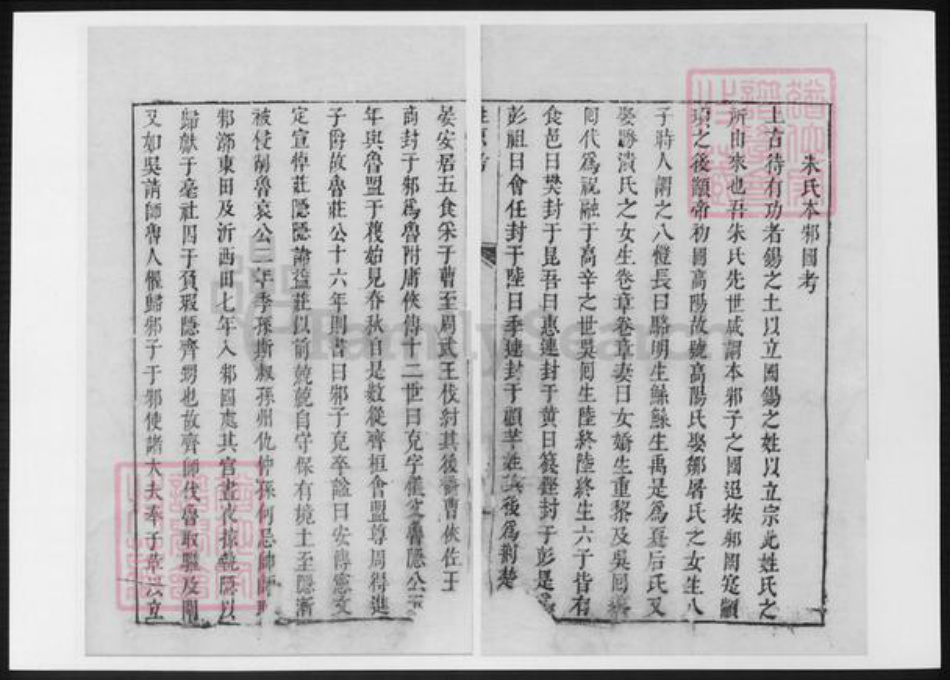 朱氏本邾國考
上古待有功者錫之土以立國錫之姓以立宗此姓氏之
所由來也吾朱氏先世咸謂本邾子之國退按邾開寔顓
頊之後顓帝初國高陽故號高陽氏娶鄒屠氏之女生八
子時人謂之八愷長曰駱明生鯀鯀生禹是為夏后氏又
娶勝濆氏之女生卷章卷章妻曰女嬌生重黎及吳回
回代為祝融于高辛之世吳回生陸終陸終生六子皆有
食邑曰樊封于昆吾曰惠連封于黄曰籛鏗封于彭是為
彭祖曰會任封于陸曰季連封于顧芈姓後為荆楚
晏安居五食采于曹至周武王伐紂其後曹俠佐王
商封于邾為魯附庸俠傳十二世曰克字儀父魯隱公元
年與魯盟于蔑始見春秋自是數從齊桓會盟尊周得進
子爵故魯莊公十六年則書曰邾子克卒諡曰安傳憲文
定宣悼莊隱隱諭益莊以前兢兢自守保有境土至隱漸
被侵削魯哀公二年季孫斯叔孫州仇仲孫何忌帥師
邾漷東田及沂西田七年入邾國處其官晝夜掠執隱以
歸獻于亳社囚于負瑕隱齊甥也故齊師伐魯取讙及闡
又如吳請師魯人懼歸邾子于邾使諸大夫奉子革以立
FamilySearch